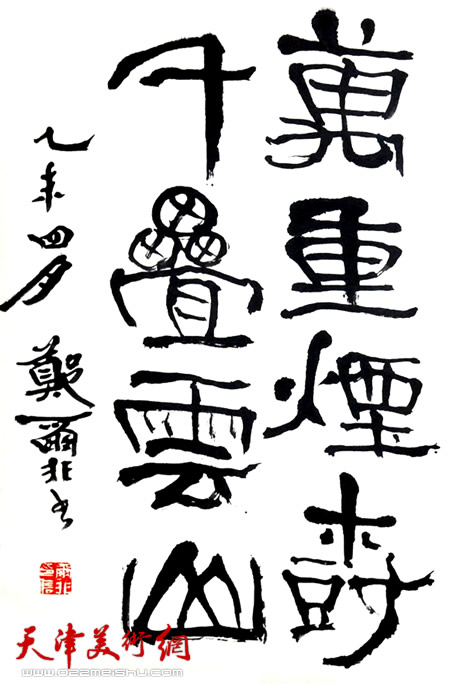 萬重煙樹
千疊雲山
乙未四月 鄭爾非書
天津美術網
www.022meishu.com